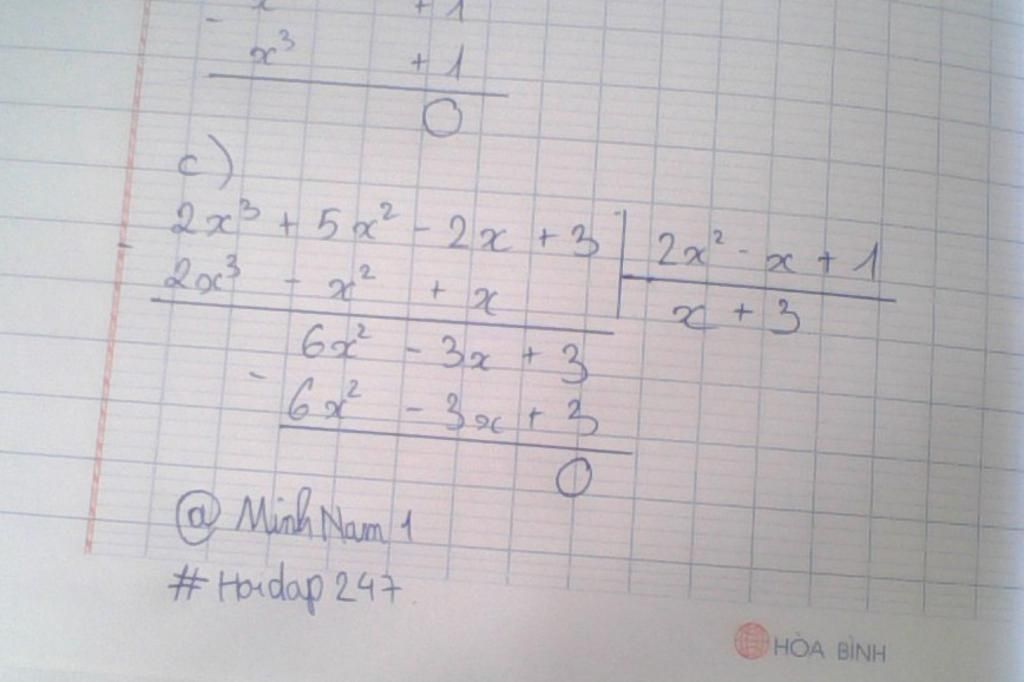 + 1
- x³ + 1
0
c)
2x³ + 5x² - 2x + 3 | 2x² - x + 1
- 2x³ - x² + x | x + 3
6x² - 3x + 3
- 6x² - 3x + 3
0
@ Minh Nam 1
# Hoidap 247
HÒA BÌNH